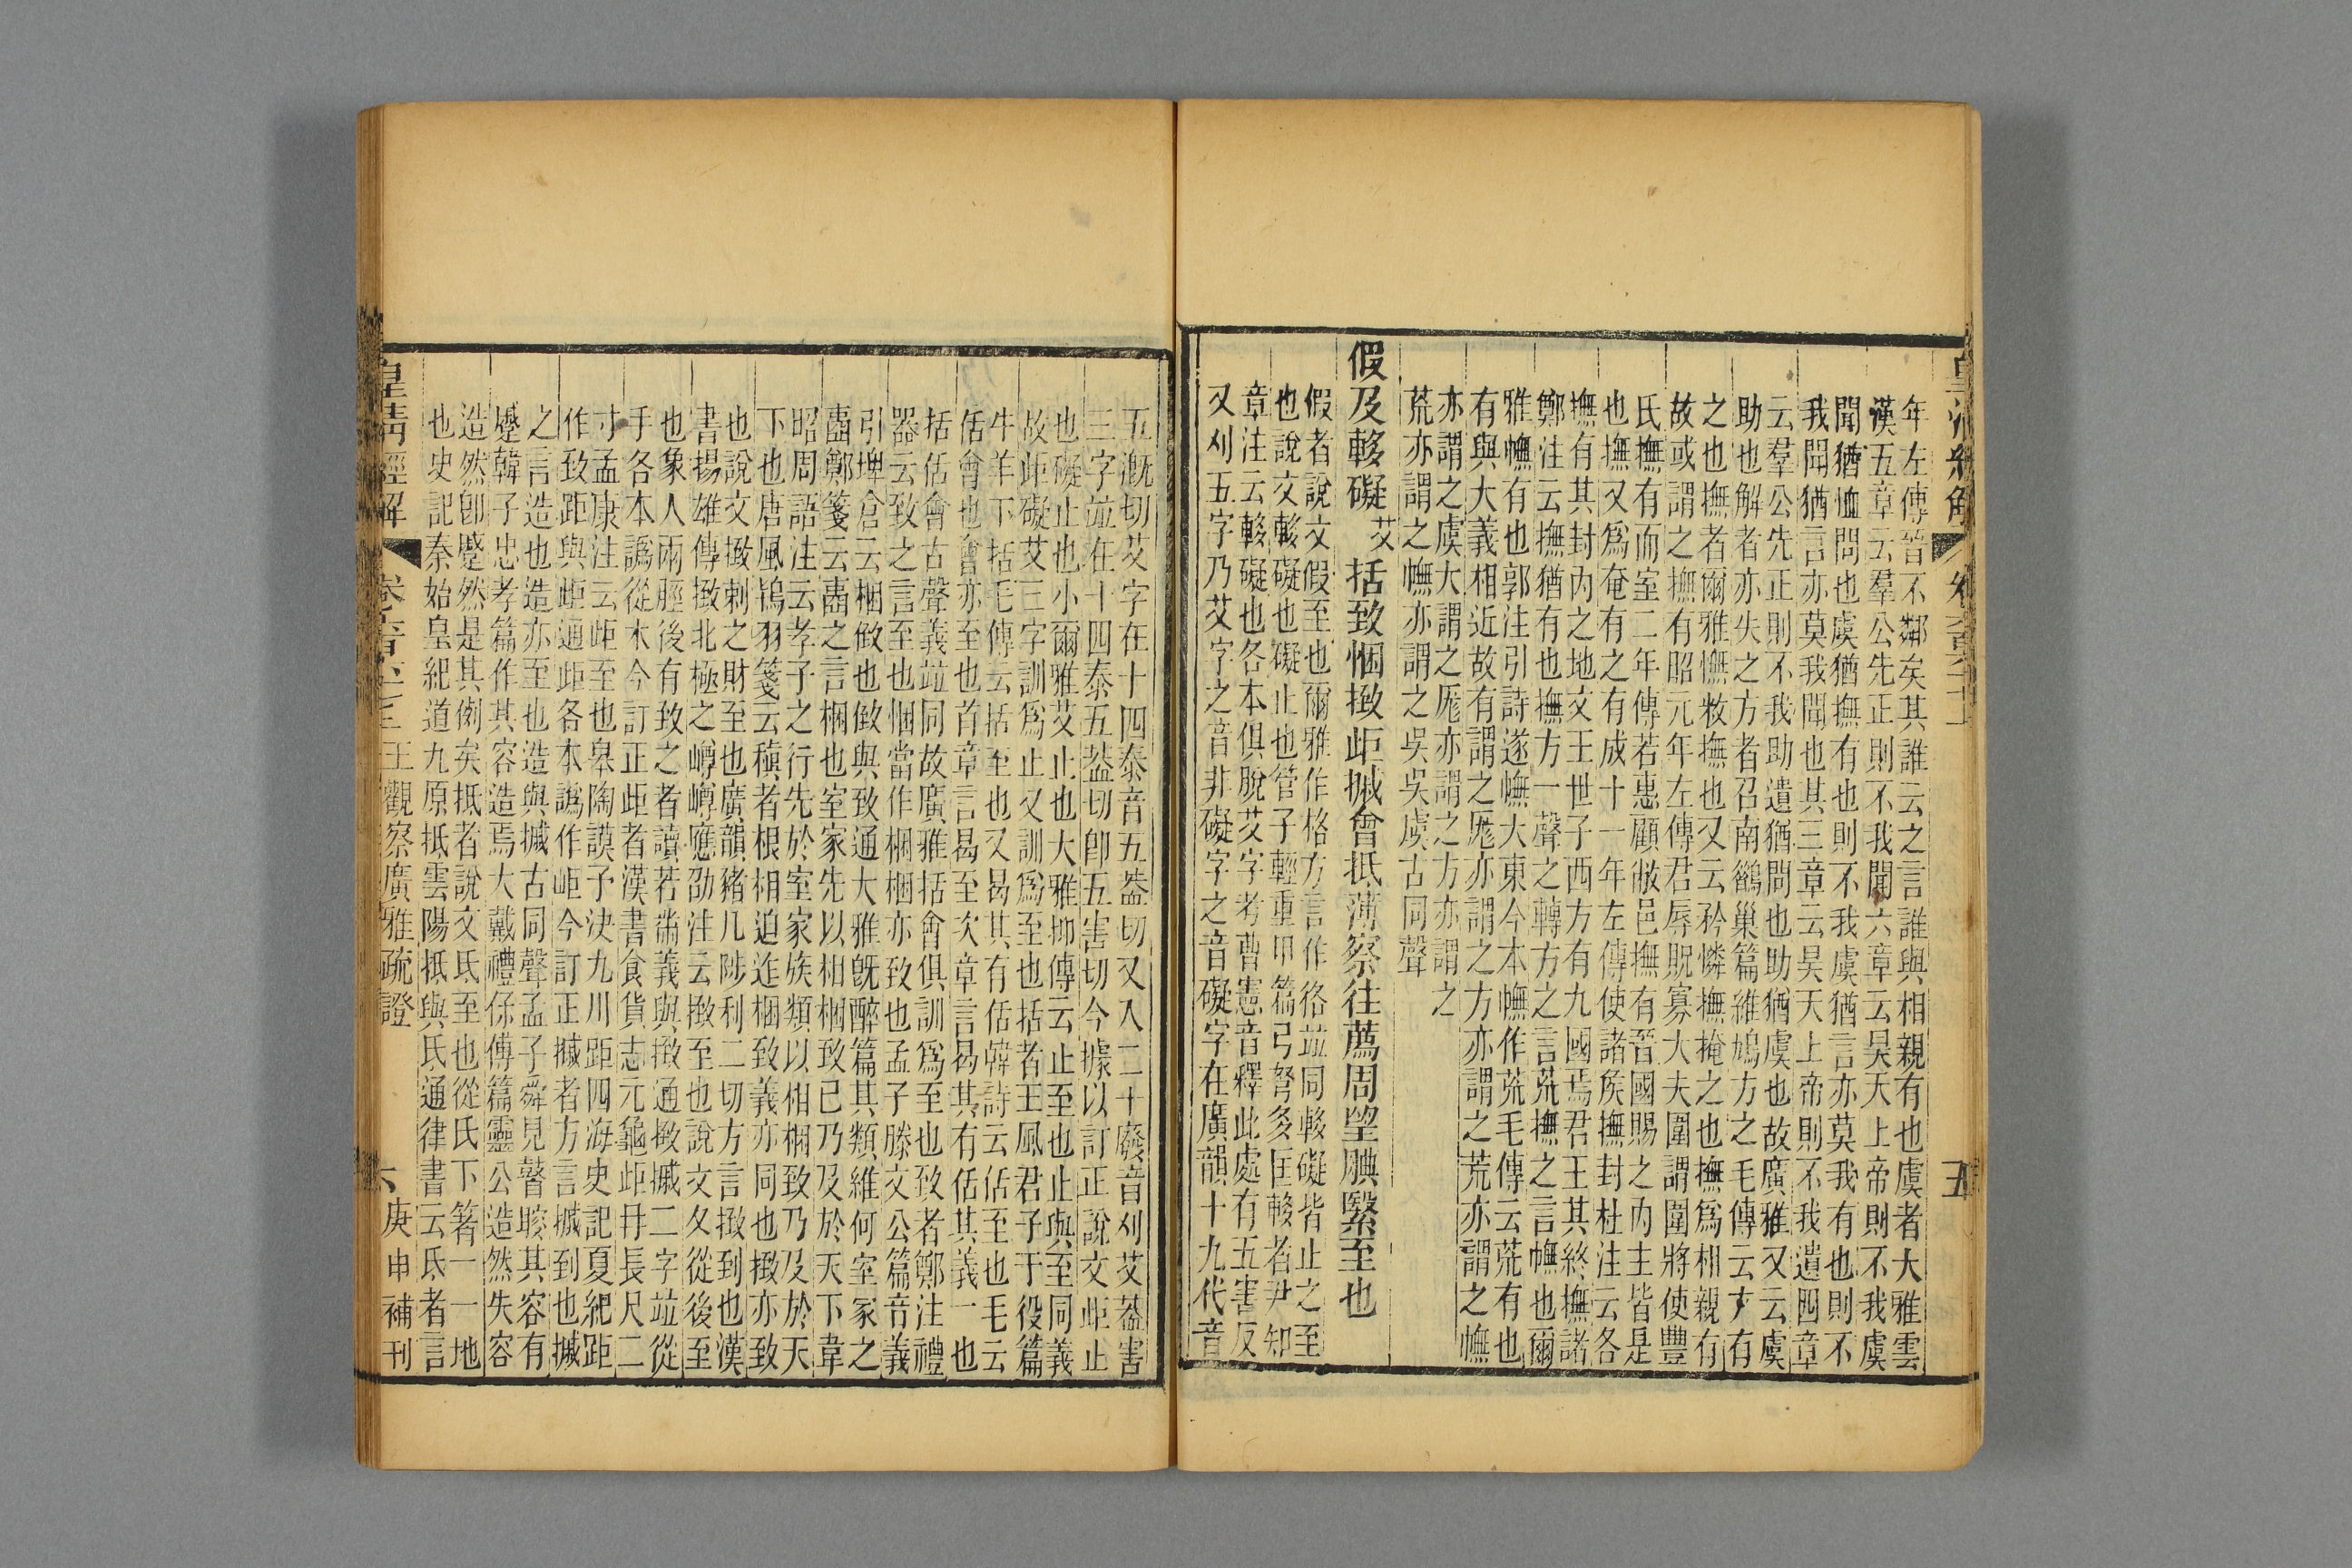 年左傳晉不鄰矣其誰云之言誰與相親有也虞者大雅雲
漢五章云羣公先正則不我聞六章云昊天上帝則不我虞
聞猶恤問也虞猶撫有也則不我虞猶言亦莫我有也則不
我聞猶言亦莫我聞也其三章云昊天上帝則不我遺四章
云羣公先正則不我助遺猶問也助猶虞也故廣雅又云虞
助也解者亦失之方者召南鵲巢篇維鳩方之毛傳云方有
之也撫者爾雅憮敉撫也又云矜憐撫掩之也撫爲相親有
故或謂之撫有昭元年左傳君辱貺寡大夫圍謂圍將使豐
氏撫有而室二年傳若惠顧敝邑撫有晉國賜之內主皆是
也撫又爲奄有之有成十一年左傳使諸侯撫封杜注云各
撫有其封內之地文王世子西方有九國焉君王其終撫諸
鄭注云撫猶有也撫方一聲之轉方之言荒撫之言幠也爾
雅幠有也郭注引詩遂幠大東今本幠作荒毛傳云荒有也
有與大義相近故有謂之厖亦謂之方亦謂之荒亦謂之幠
亦謂之虞大謂之厖亦謂之方亦謂之
荒亦謂之幠亦謂之吳吳虞古同聲
假及輆礙艾括致悃㨖歫摵會抵薄察往薦周望腆繄至也
假者說文徦至也爾雅作格方言作㣟竝同輆礙皆止之至
也說文輆礙也礙止也管子輕重甲篇弓弩多匡輆者尹知
章注云輆礙也各本俱脫艾字考曹憲音釋此處有五害反
又刈五字乃艾字之音非礙字之音礙字在廣韻十九代音
五漑切艾字在十四泰音五葢切又入二十廢音刈艾葢害
三字竝在十四泰五葢切卽五害切今據以訂正說文歫止
也礙止也小爾雅艾止也大雅抑傳云止至也止與至同義
故歫礙艾三字訓爲止又訓爲至也括者王風君子于役篇
牛羊下括毛傳云括至也又曷其有佸韓詩云佸至也毛云
佸會也會亦至也首章言曷至次章言曷其有佸其義一也
括佸會古聲義竝同故廣雅括會俱訓爲至也致者鄭注禮
器云致之言至也悃當作梱梱亦致也孟子滕文公篇音義
引埤倉云梱㑷也㑷與致通大雅旣醉篇其類維何室家之
壼鄭箋云壼之言梱也室家先以相梱致已乃及於天下韋
昭周語注云孝子之行先於室家族類以相梱致乃及於天
下也唐風鴇羽箋云稹者根相迫迮梱致義亦同也㨖亦致
也說文㨖刺之財至也廣韻豬几陟利二切方言㨖到也漢
書揚雄傳㨖北極之嶟嶟應劭注云㨖至也說文夂從後至
也象人兩脛後有致之者讀若黹義與㨖通㨖摵二字竝從
手各本譌從木今訂正歫者漢書食貨志元龜歫冄長尺二
寸孟康注云歫至也皋陶謨予決九川距四海史記夏紀距
作致距與歫通歫各本譌作岠今訂正摵者方言摵到也摵
之言造也造亦至也造與摵古同聲孟子舜見瞽瞍其容有
蹙韓子忠孝篇作其容造焉大戴禮保傅篇靈公造然失容
造然卽蹙然是其例矣抵者說文氐至也從氏下箸一一地
也史記秦始皇紀道九原抵雲陽抵與氐通律書云氐者言
皇清經解 王觀察廣雅疏證 六 庚申補刊